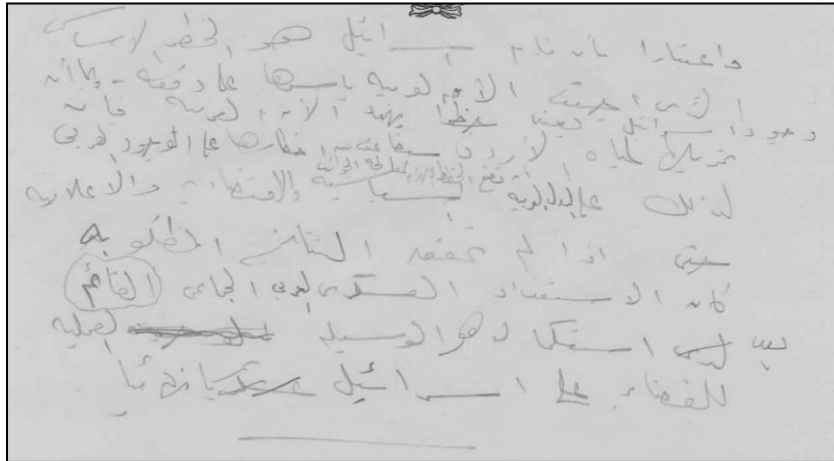 واعتبارا بأن قيام اسرائيل هو الخطر الاساسي
الذى اجمعت الأمة العربية بأسرها على دفعه - وبما أن
وجود اسرائيل يعتبر خطرا يهدد الأمة العربية فان
تحويلها لمياه الأردن يضاعف من اخطارها على الوجود العربى
لذلك على الدول العربية أن تضع الخطط اللازمة لمعالجة الجوانب
السياسية والاقتصادية والاعلامية
حتى اذا لم تحقق النتائج المطلوبه
كان الاستعداد العسكرى العربى الجماعى القائم
بعد استكماله هو الوسيلة العملية
للقضاء على اسرائيل نهائيا